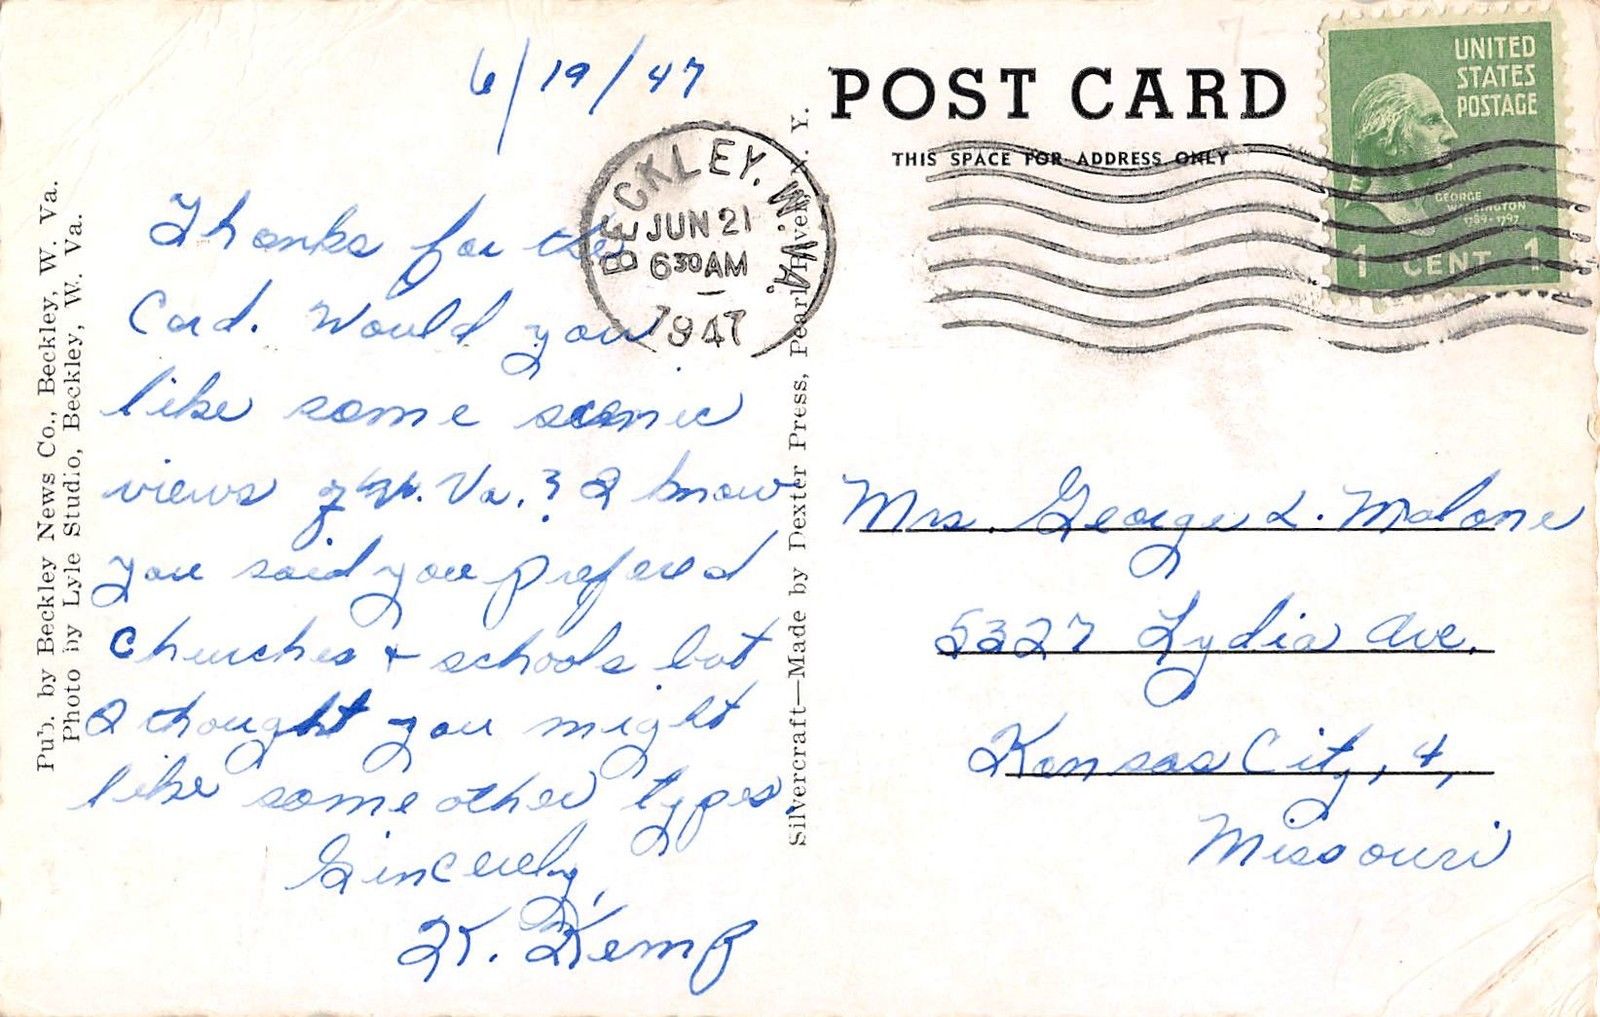 6/19/47
Thanks for the
Card. Would you
like some scenic
views of W. Va.? I know
you said you prefered
Churches & schools but
I thought you might
like some other types.
Sincerely,
K. Kemp
Pub. by Beckley News Co., Beckley, W. Va.
Photo by Lyle Studio, Beckley, W. Va.
BECKLEY, W. VA.
JUN 21
6 30 AM
1947
Silvercraft—Made by Dexter Press, Pearl River, N. Y.
POST CARD
THIS SPACE FOR ADDRESS ONLY
UNITED
STATES
POSTAGE
GEORGE
WASHINGTON
1789-1797
1 CENT 1
Mrs. George L. Malone
5327 Lydia Ave.
Kansas City, 4,
Missouri